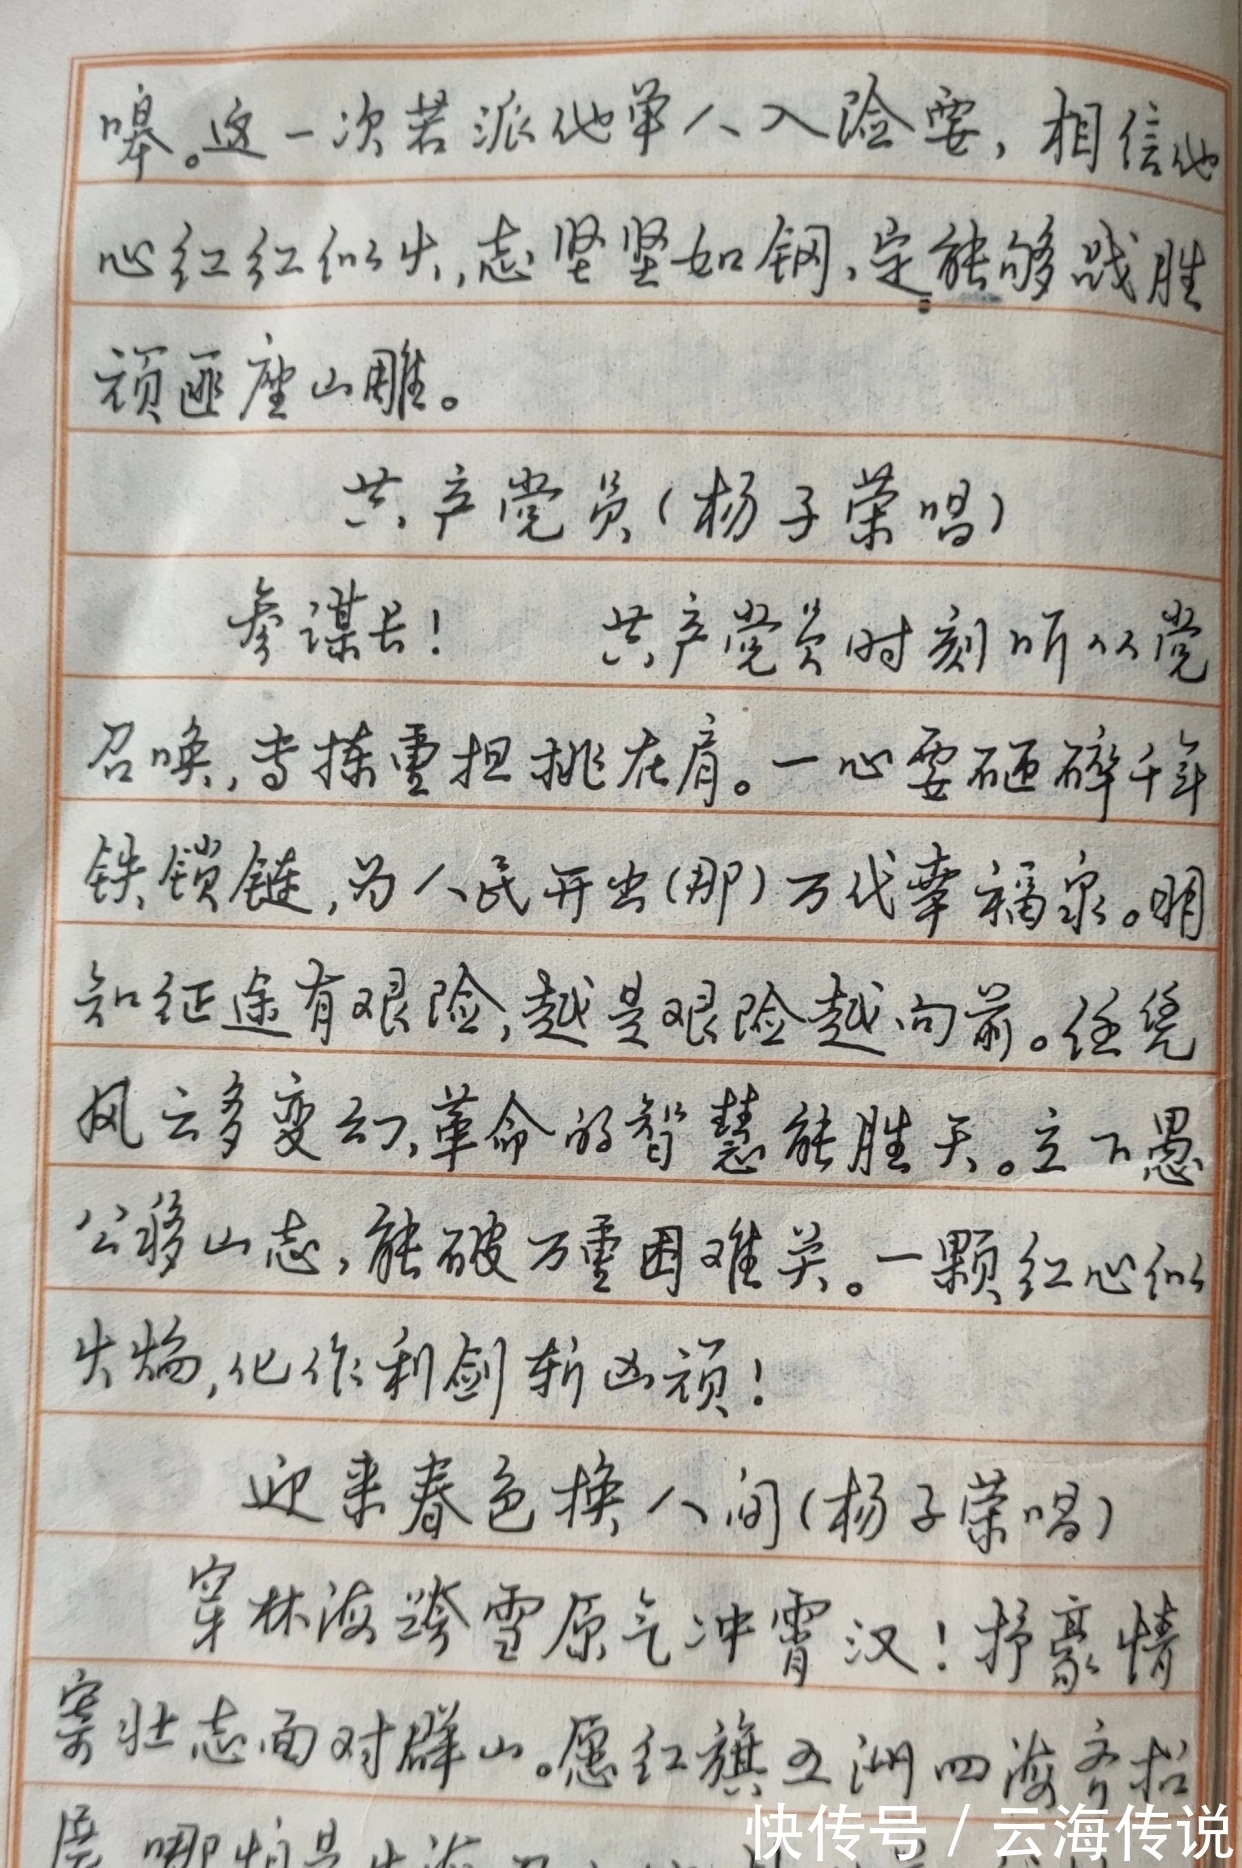 嗥。这一次若派他单人入险要,相信他
心红红似火,志坚坚如钢,定能够战胜
顽匪座山雕。
共产党员(杨子荣唱)
参谋长! 共产党员时刻听从党
召唤,专拣重担挑在肩。一心要砸碎千年
铁锁链,为人民开出(那)万代幸福泉。明
知征途有艰险,越是艰险越向前。任凭
风云多变幻,革命的智慧能胜天。立下愚
公移山志,能破万重困难关。一颗红心似
火焰,化作利剑斩凶顽!
迎来春色换人间(杨子荣唱)
穿林海跨雪原气冲霄汉!抒豪情
寄壮志面对群山。愿红旗五湖四海齐招
展哪怕是火海
快传号/云海传说